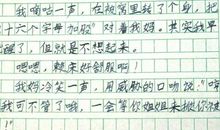 我嘀咕一声，在被窝里转了个身，把
"十六个字母加股"对着我妈。其实我早
醒了，但就是不想起来。
嗯嗯，赖床好舒服啊！
我妈冷笑一声，用威胁的口吻说："哼
我可不管了哦，一会等你姐姐来掀你被
！"